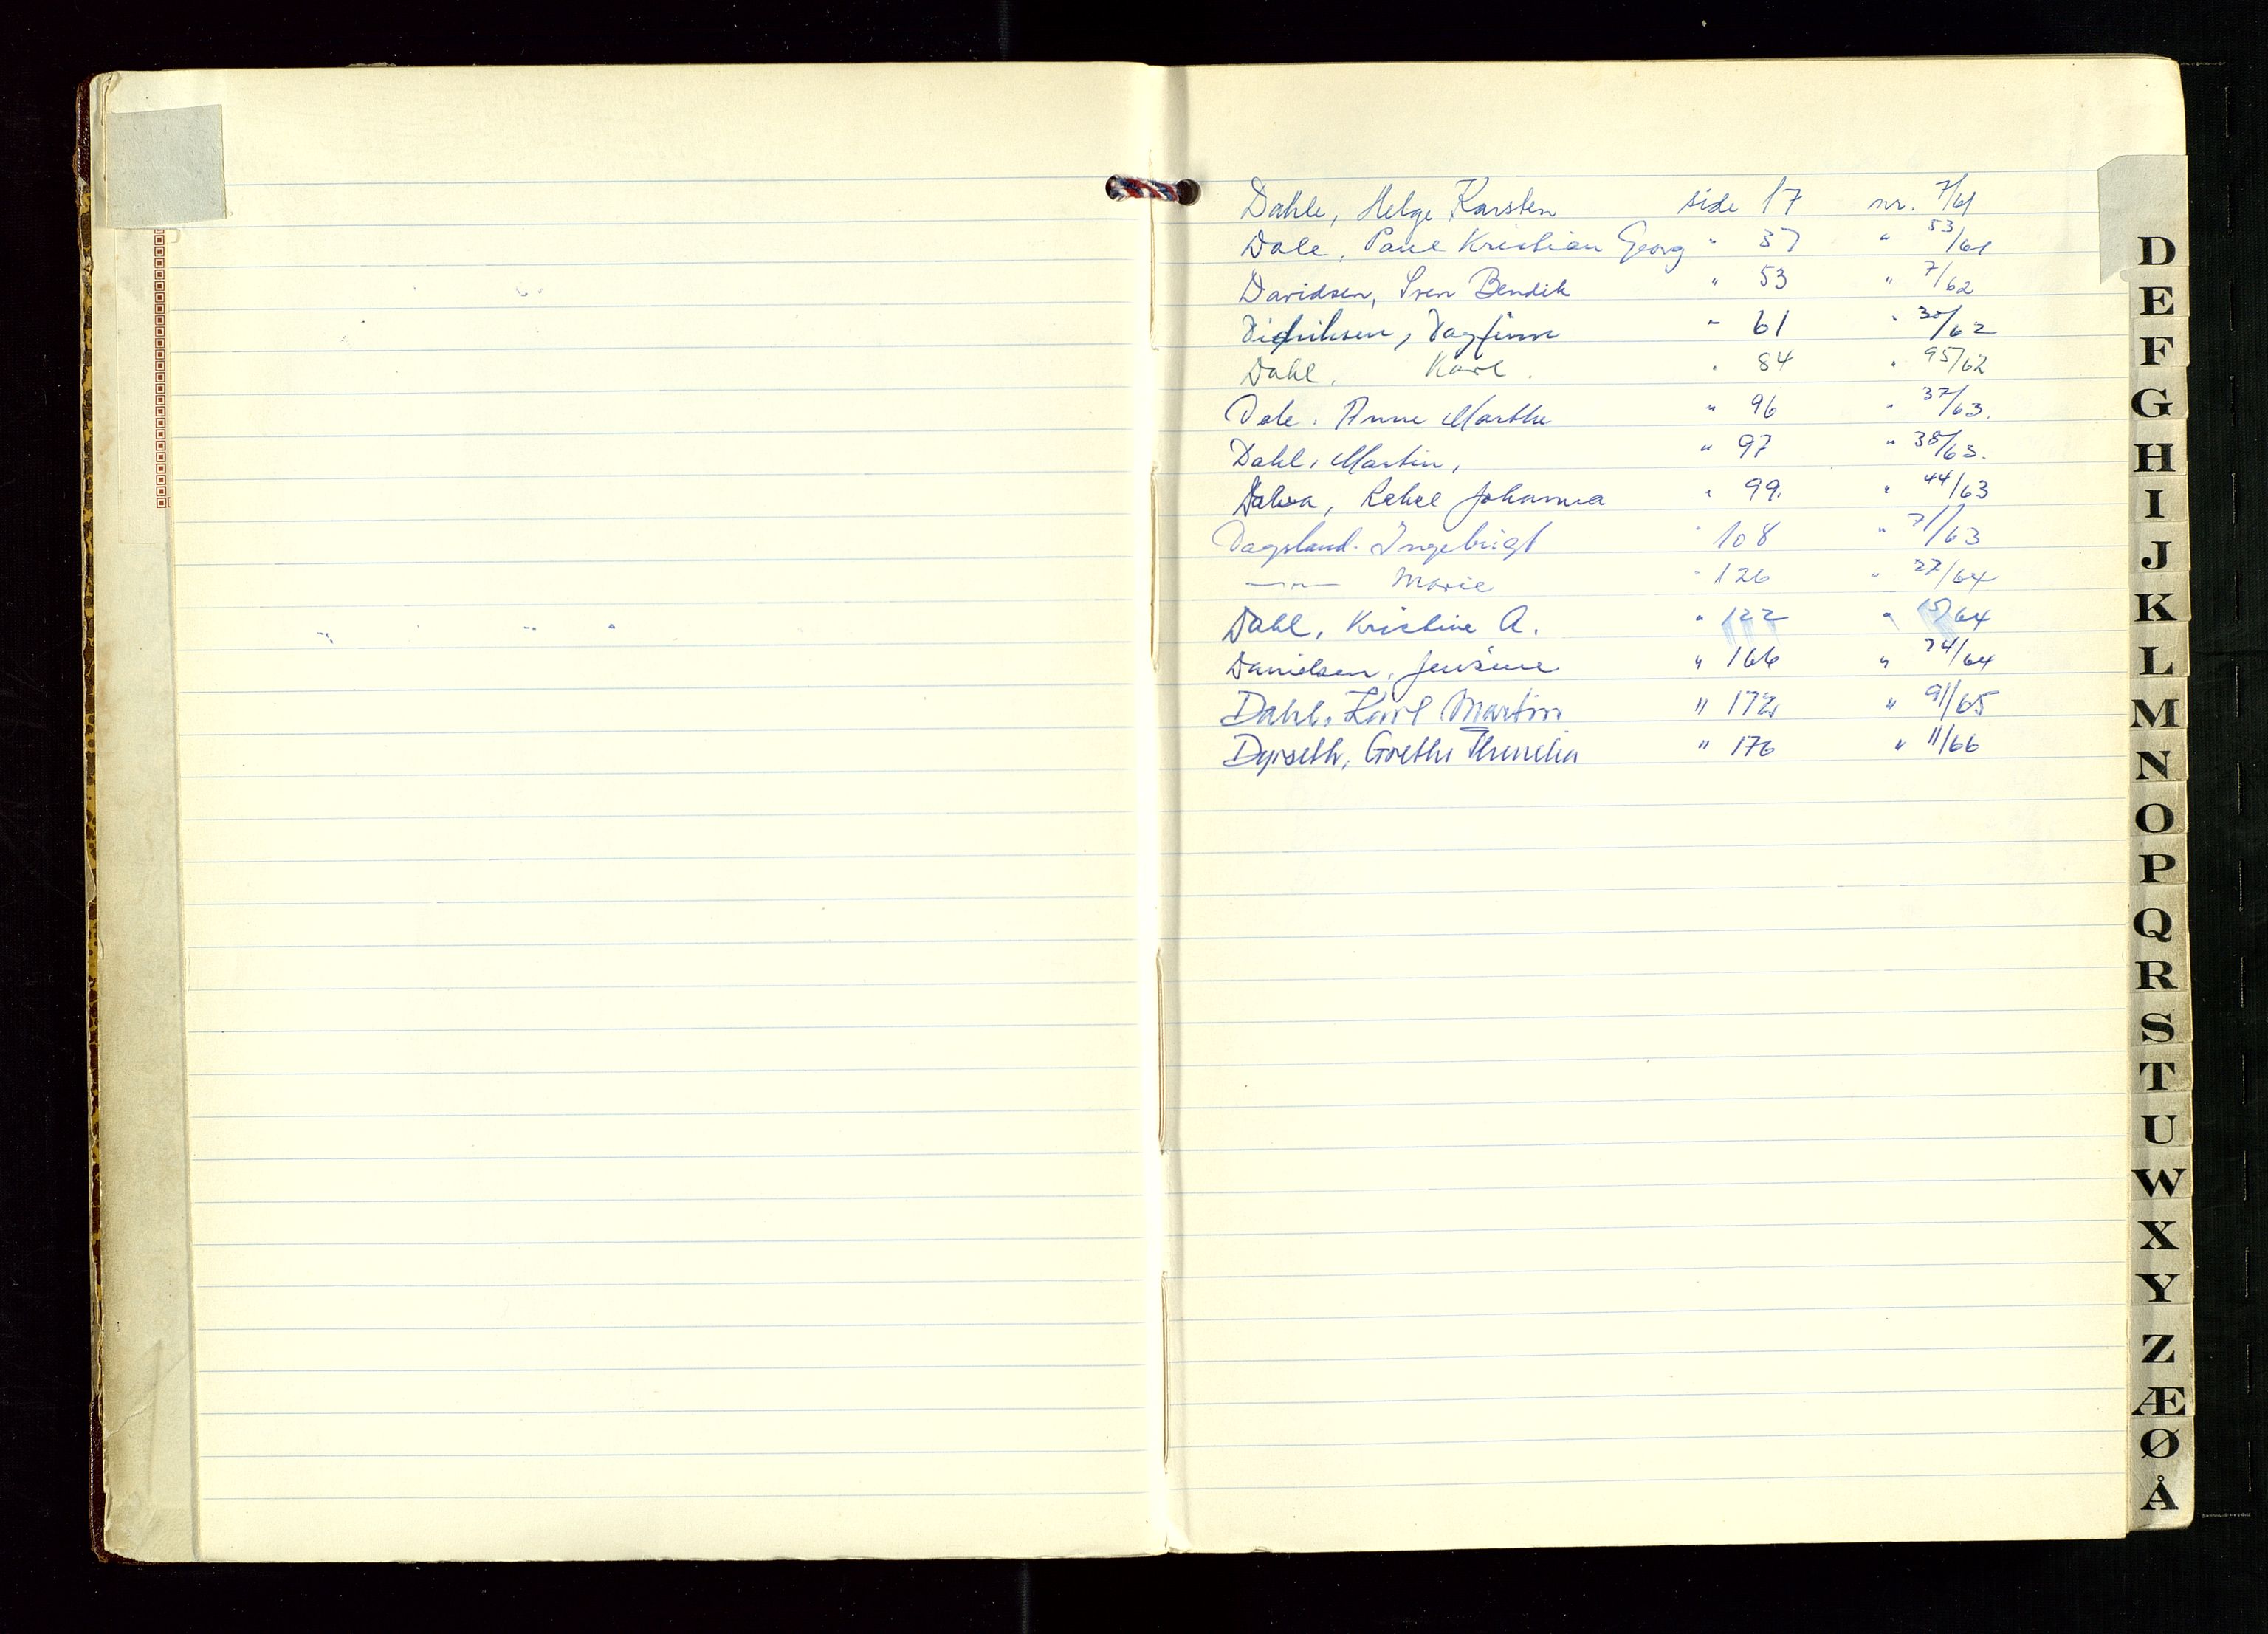 Dahle, Helge Karsten side 17 nr. 7/61
Dale, Paul Kristian Georg " 37 " 53/61
Davidsen, Sven Bendik " 53 " 7/62
Didriksen, Dagfinn " 61 " 30/62
Dahl, Karl. " 84 " 95/62
Dale. Anne Marthe " 96 " 37/63.
Dahl, Martin, " 97 " 38/63.
Rakel Johanna " 99. " 44/63
Dagsland. Ingebrigt " 108 " 71/63
—"— Marie " 126 " 27/64
Dahl, Kristine A. " 122 " 15/64
Danielsen, Jensine " 166 " 74/64
Dahl, Karl Martin " 172 " 91/65
Dyrseth, Grethe " 176 " 11/66
D
E
F
G
H
I
J
K
L
M
N
O
P
Q
R
S
T
U
W
X
Y
Z
Æ
Ø
Å